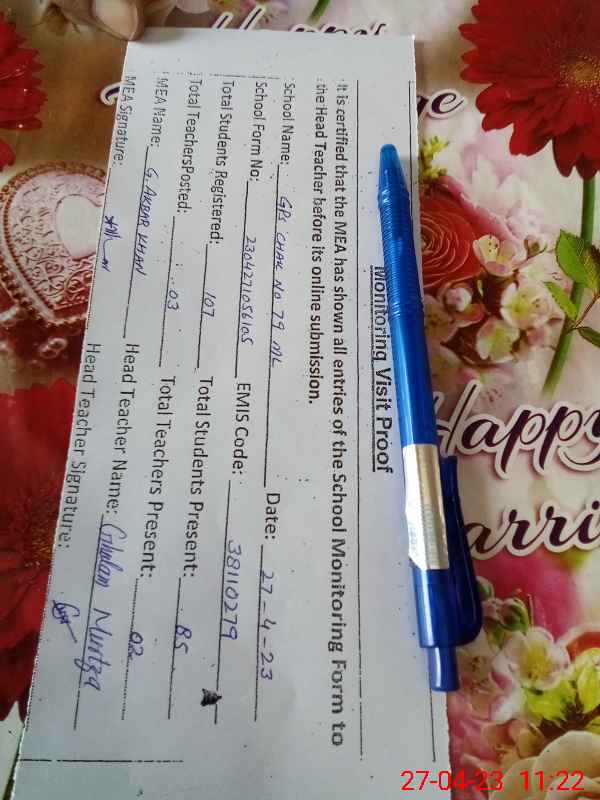 Monitoring Visit Proof
It is certified that the MEA has shown all entries of the School Monitoring Form to
the Head Teacher before its online submission.
School Name: GPS CHAK NO 79 ML Date: 27-4-23
School Form No: EMIS Code: 38110279
Total Students Registered: 107 Total Students Present: 85
Total TeachersPosted: 03 Total Teachers Present: 02
MEA Name: G.AKBAR KHAN Head Teacher Name: Ghulam Murtza
MEA Signature: Head Teacher Signature:
Happy
27-04-23 11:22